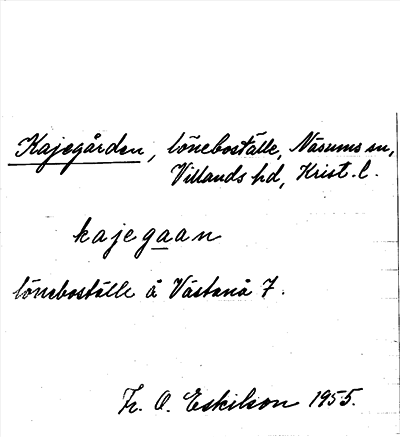 Kajegården, löneboställe, Näsums sn,
Villands hd, Krist. l.
kajegaan
löneboställe å Västanå 7.
Fr. O. Eskilson 1955.